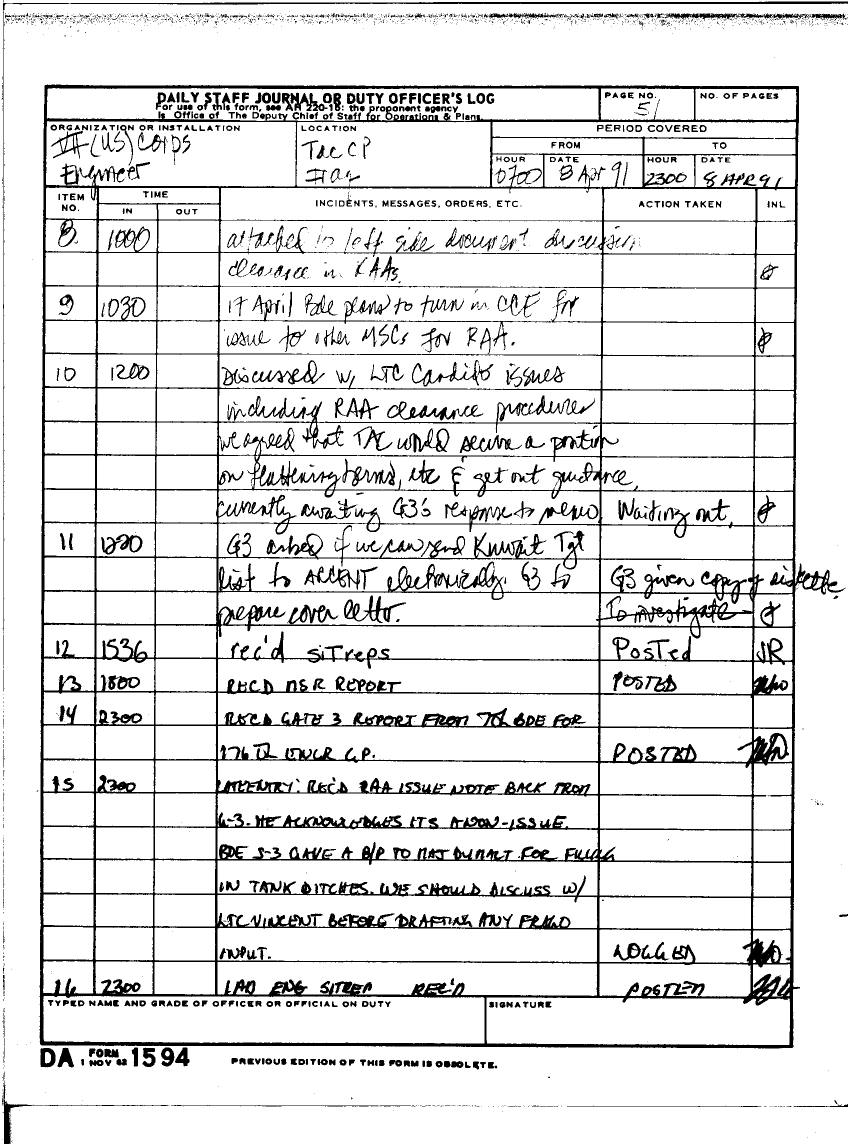 DAILY STAFF JOURNAL OR DUTY OFFICER'S LOG
For use of this form, see AR 220-15: the proponent agency
is Office of The Deputy Chief of Staff for Operations & Plans.
PAGE NO.
51
NO. OF PAGES
ORGANIZATION OR INSTALLATION
VII (US) Corps
Engineer
LOCATION
Tac CP
Iraq
PERIOD COVERED
FROM
TO
HOUR
0700
DATE
8 Apr 91
HOUR
2300
DATE
8 APR 91
ITEM NO.
TIME
IN
OUT
INCIDENTS, MESSAGES, ORDERS, ETC.
ACTION TAKEN
INL
8 1000 attached to left side document discussion
clearance in RAAs.
9 1030 17 April Bde plans to turn in CCE for
issue to other MSCs for RAA.
10 1200 Discussed w/ LTC Candido issues
including RAA clearance procedures
we agreed that TAC would secure a position
on flattening berms, etc & get out guidance,
currently awaiting G3's response to memo Waiting out,
11 1220 G3 asked if we can send Kuwait Tgt
list to ARCENT electronically. G3 to G3 given copy of diskette.
prepare cover letter. To investigate
12 1536 rec'd SITreps Posted JR
13 1800 REC'D MSR REPORT POSTED
14 2300 REC'D GATE 3 REPORT FROM 7th BDE FOR
176th ENGR GP. POSTED
15 2300 LATE ENTRY: REC'D RAA ISSUE NOTE BACK FROM
G-3. HE ACKNOWLEDGES ITS A NON-ISSUE.
BDE S-3 GAVE A B/P TO MAJ DUMALT FOR FILLING
IN TANK DITCHES. WE SHOULD DISCUSS W/
LTC VINCENT BEFORE DRAFTING ANY FRAGO
INPUT. LOGGED
16 2300 1AD ENG SITREP REC'D POSTED
TYPED NAME AND GRADE OF OFFICER OR OFFICIAL ON DUTY
SIGNATURE
DA FORM 1594
1 NOV 62
PREVIOUS EDITION OF THIS FORM IS OBSOLETE.